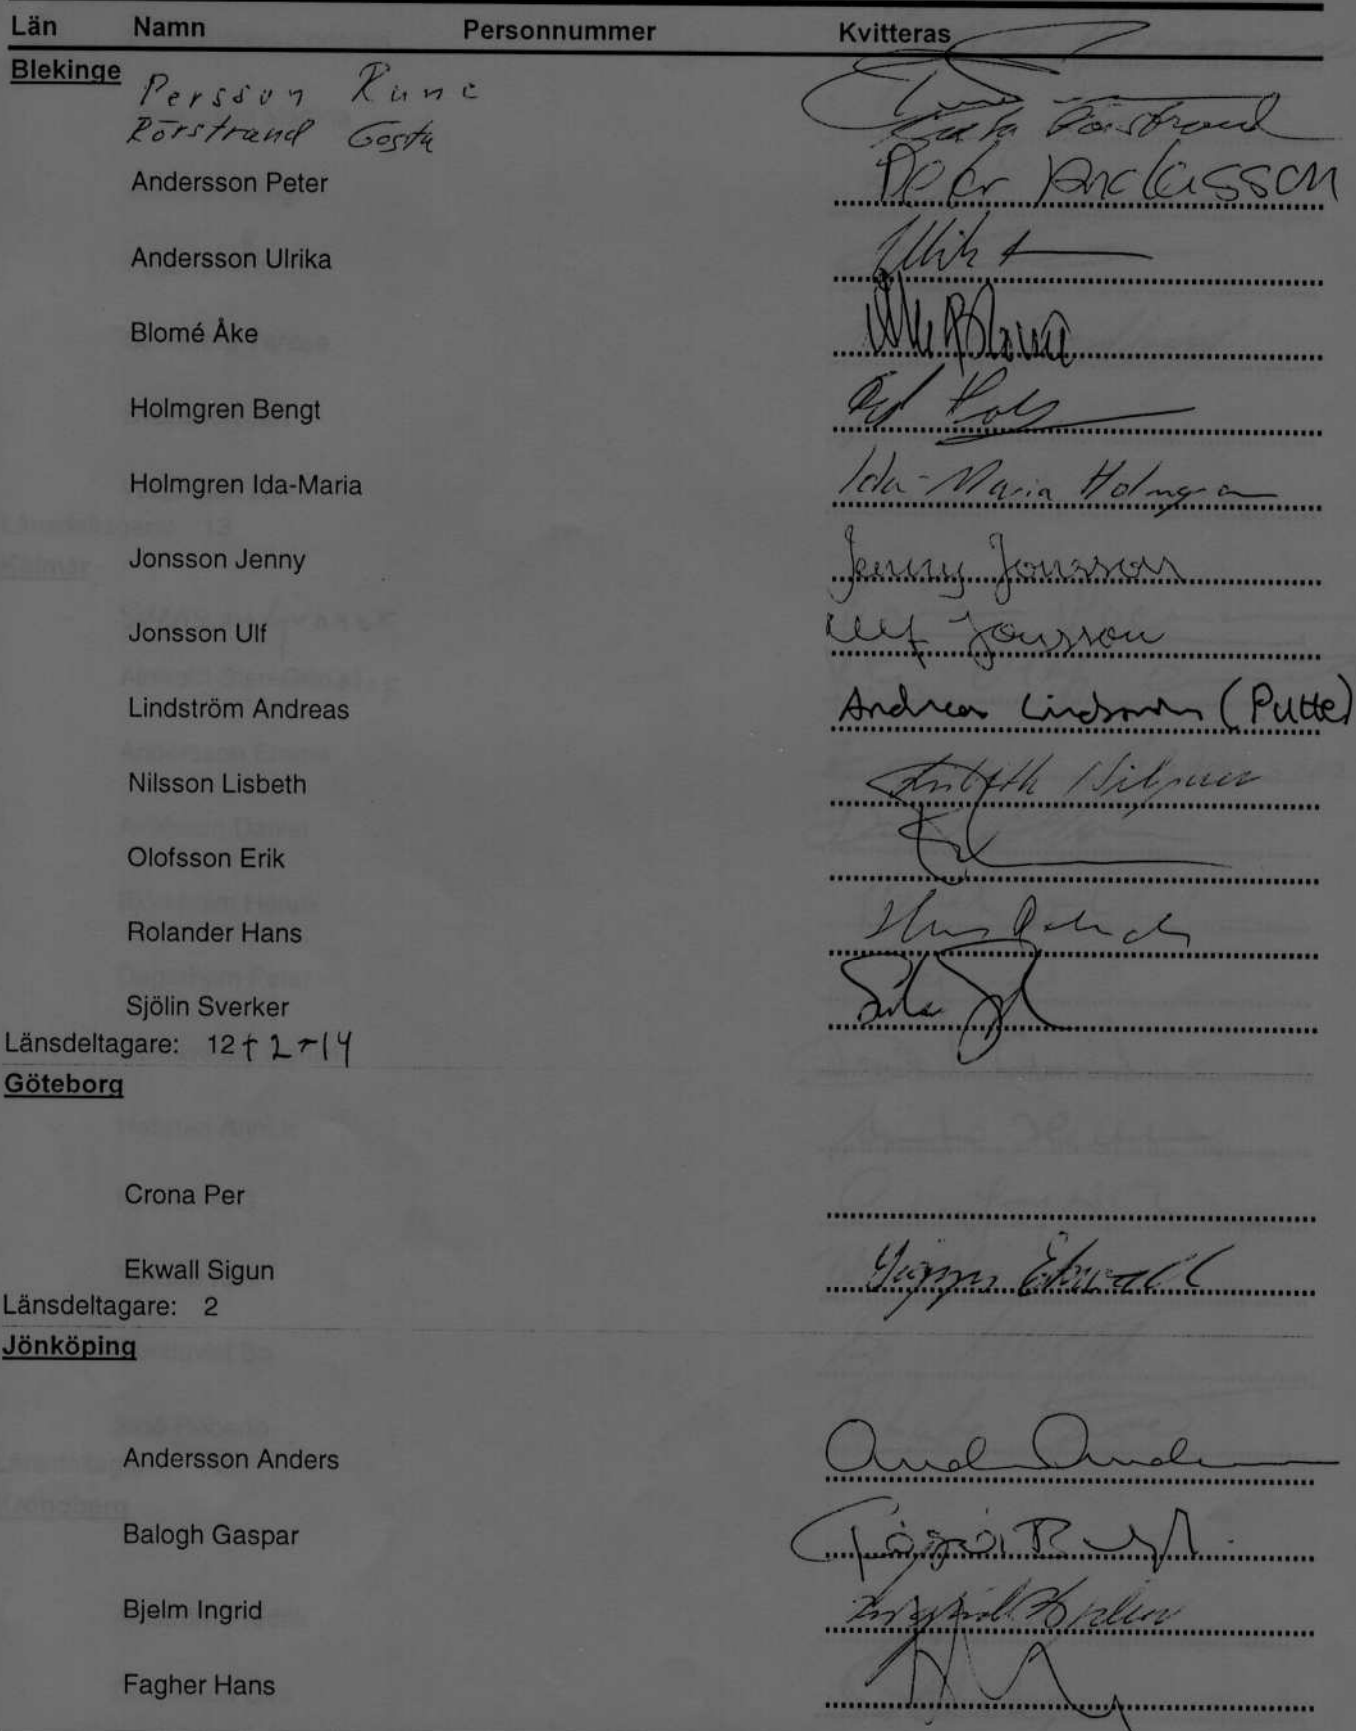 Län Namn Personnummer Kvitteras
Blekinge
Persson Rune
Rörstrand Gösta Rörstrand
Andersson Peter Peter Andersson
Andersson Ulrika
Blomé Åke Åke Blomé
Holmgren Bengt
Holmgren Ida-Maria Ida-Maria Holmgren
Jonsson Jenny Jenny Jonsson
Jonsson Ulf Ulf Jonsson
Lindström Andreas Andreas Lindström (Putte)
Nilsson Lisbeth Lisbeth Nilsson
Olofsson Erik
Rolander Hans
Sjölin Sverker
Länsdeltagare: 12 + 2 = 14
Göteborg
Crona Per
Ekwall Sigun Ekwall
Länsdeltagare: 2
Jönköping
Andersson Anders
Balogh Gaspar
Bjelm Ingrid
Fagher Hans